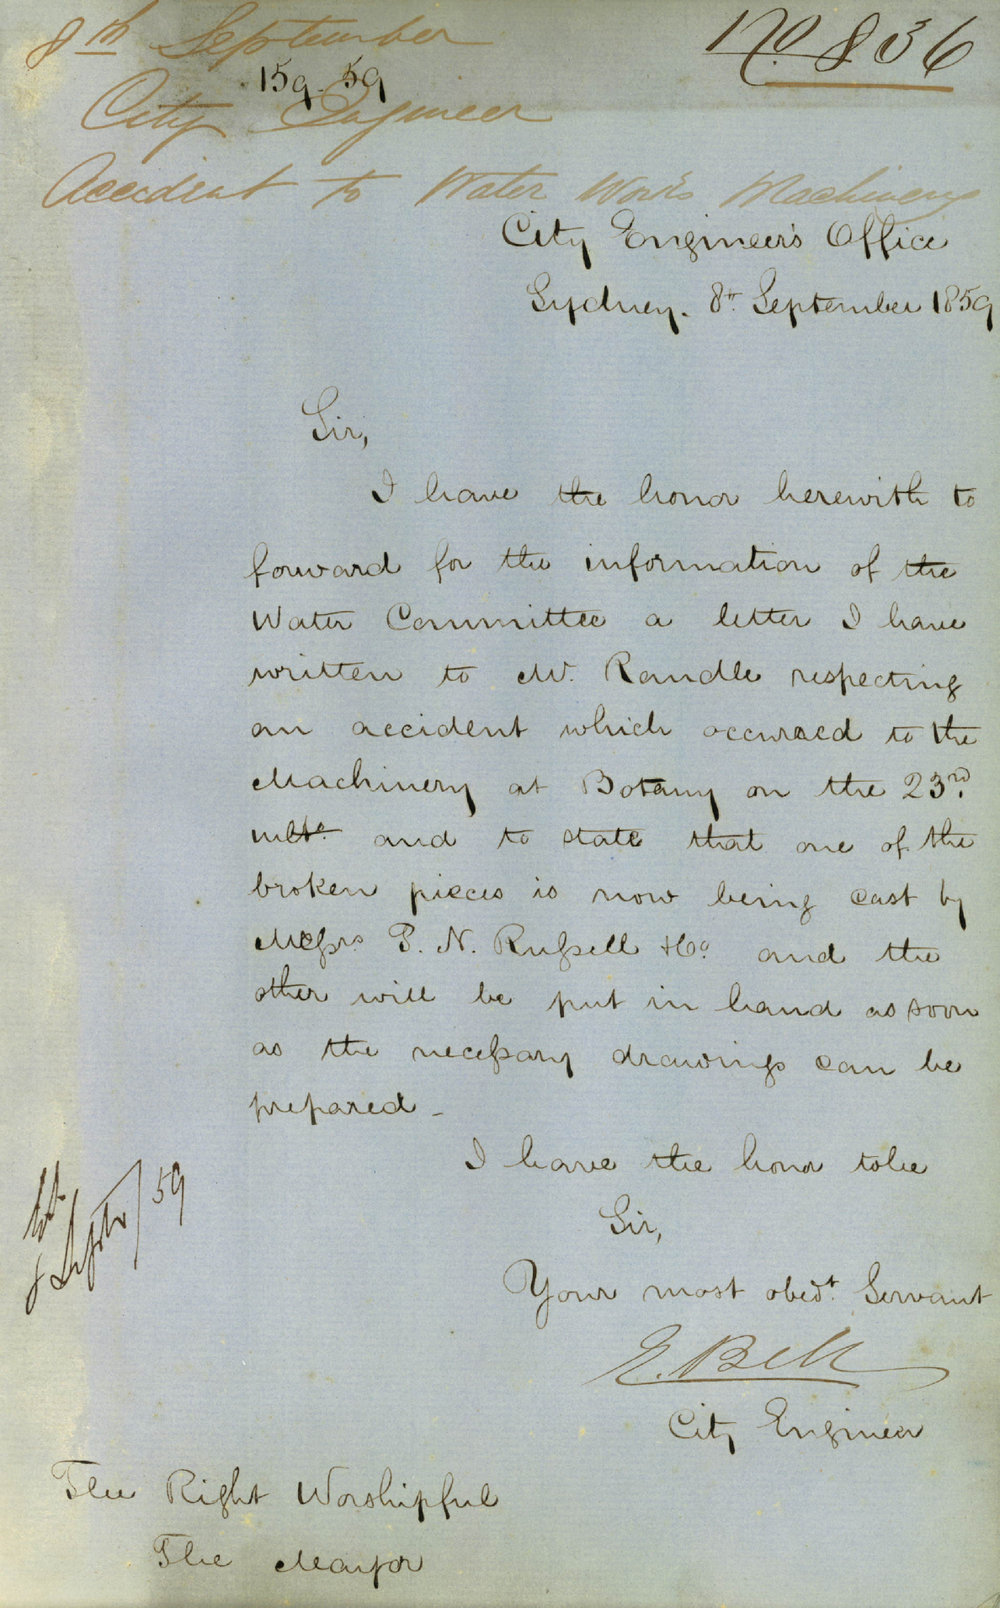 8th September
No. 836
159. 59
City Engineer
Accident to Water Works Machinery
City Engineer's Office
Sydney. 8th September 1859
Sir,
I have the honor herewith to
forward for the information of the
Water Committee a letter I have
written to Mr. Randle respecting
an accident which occurred to the
Machinery at Botany on the 23rd.
and to state that one of the
broken pieces is now being cast by
Messrs P. N. Russell & Co. and the
other will be put in hand as soon
as the necessary drawings can be
prepared _
I have the honor to be
Sir,
Your most obedt. Servant
E. Bell
City Engineer
8 Septr/59
The Right Worshipful
The Mayor